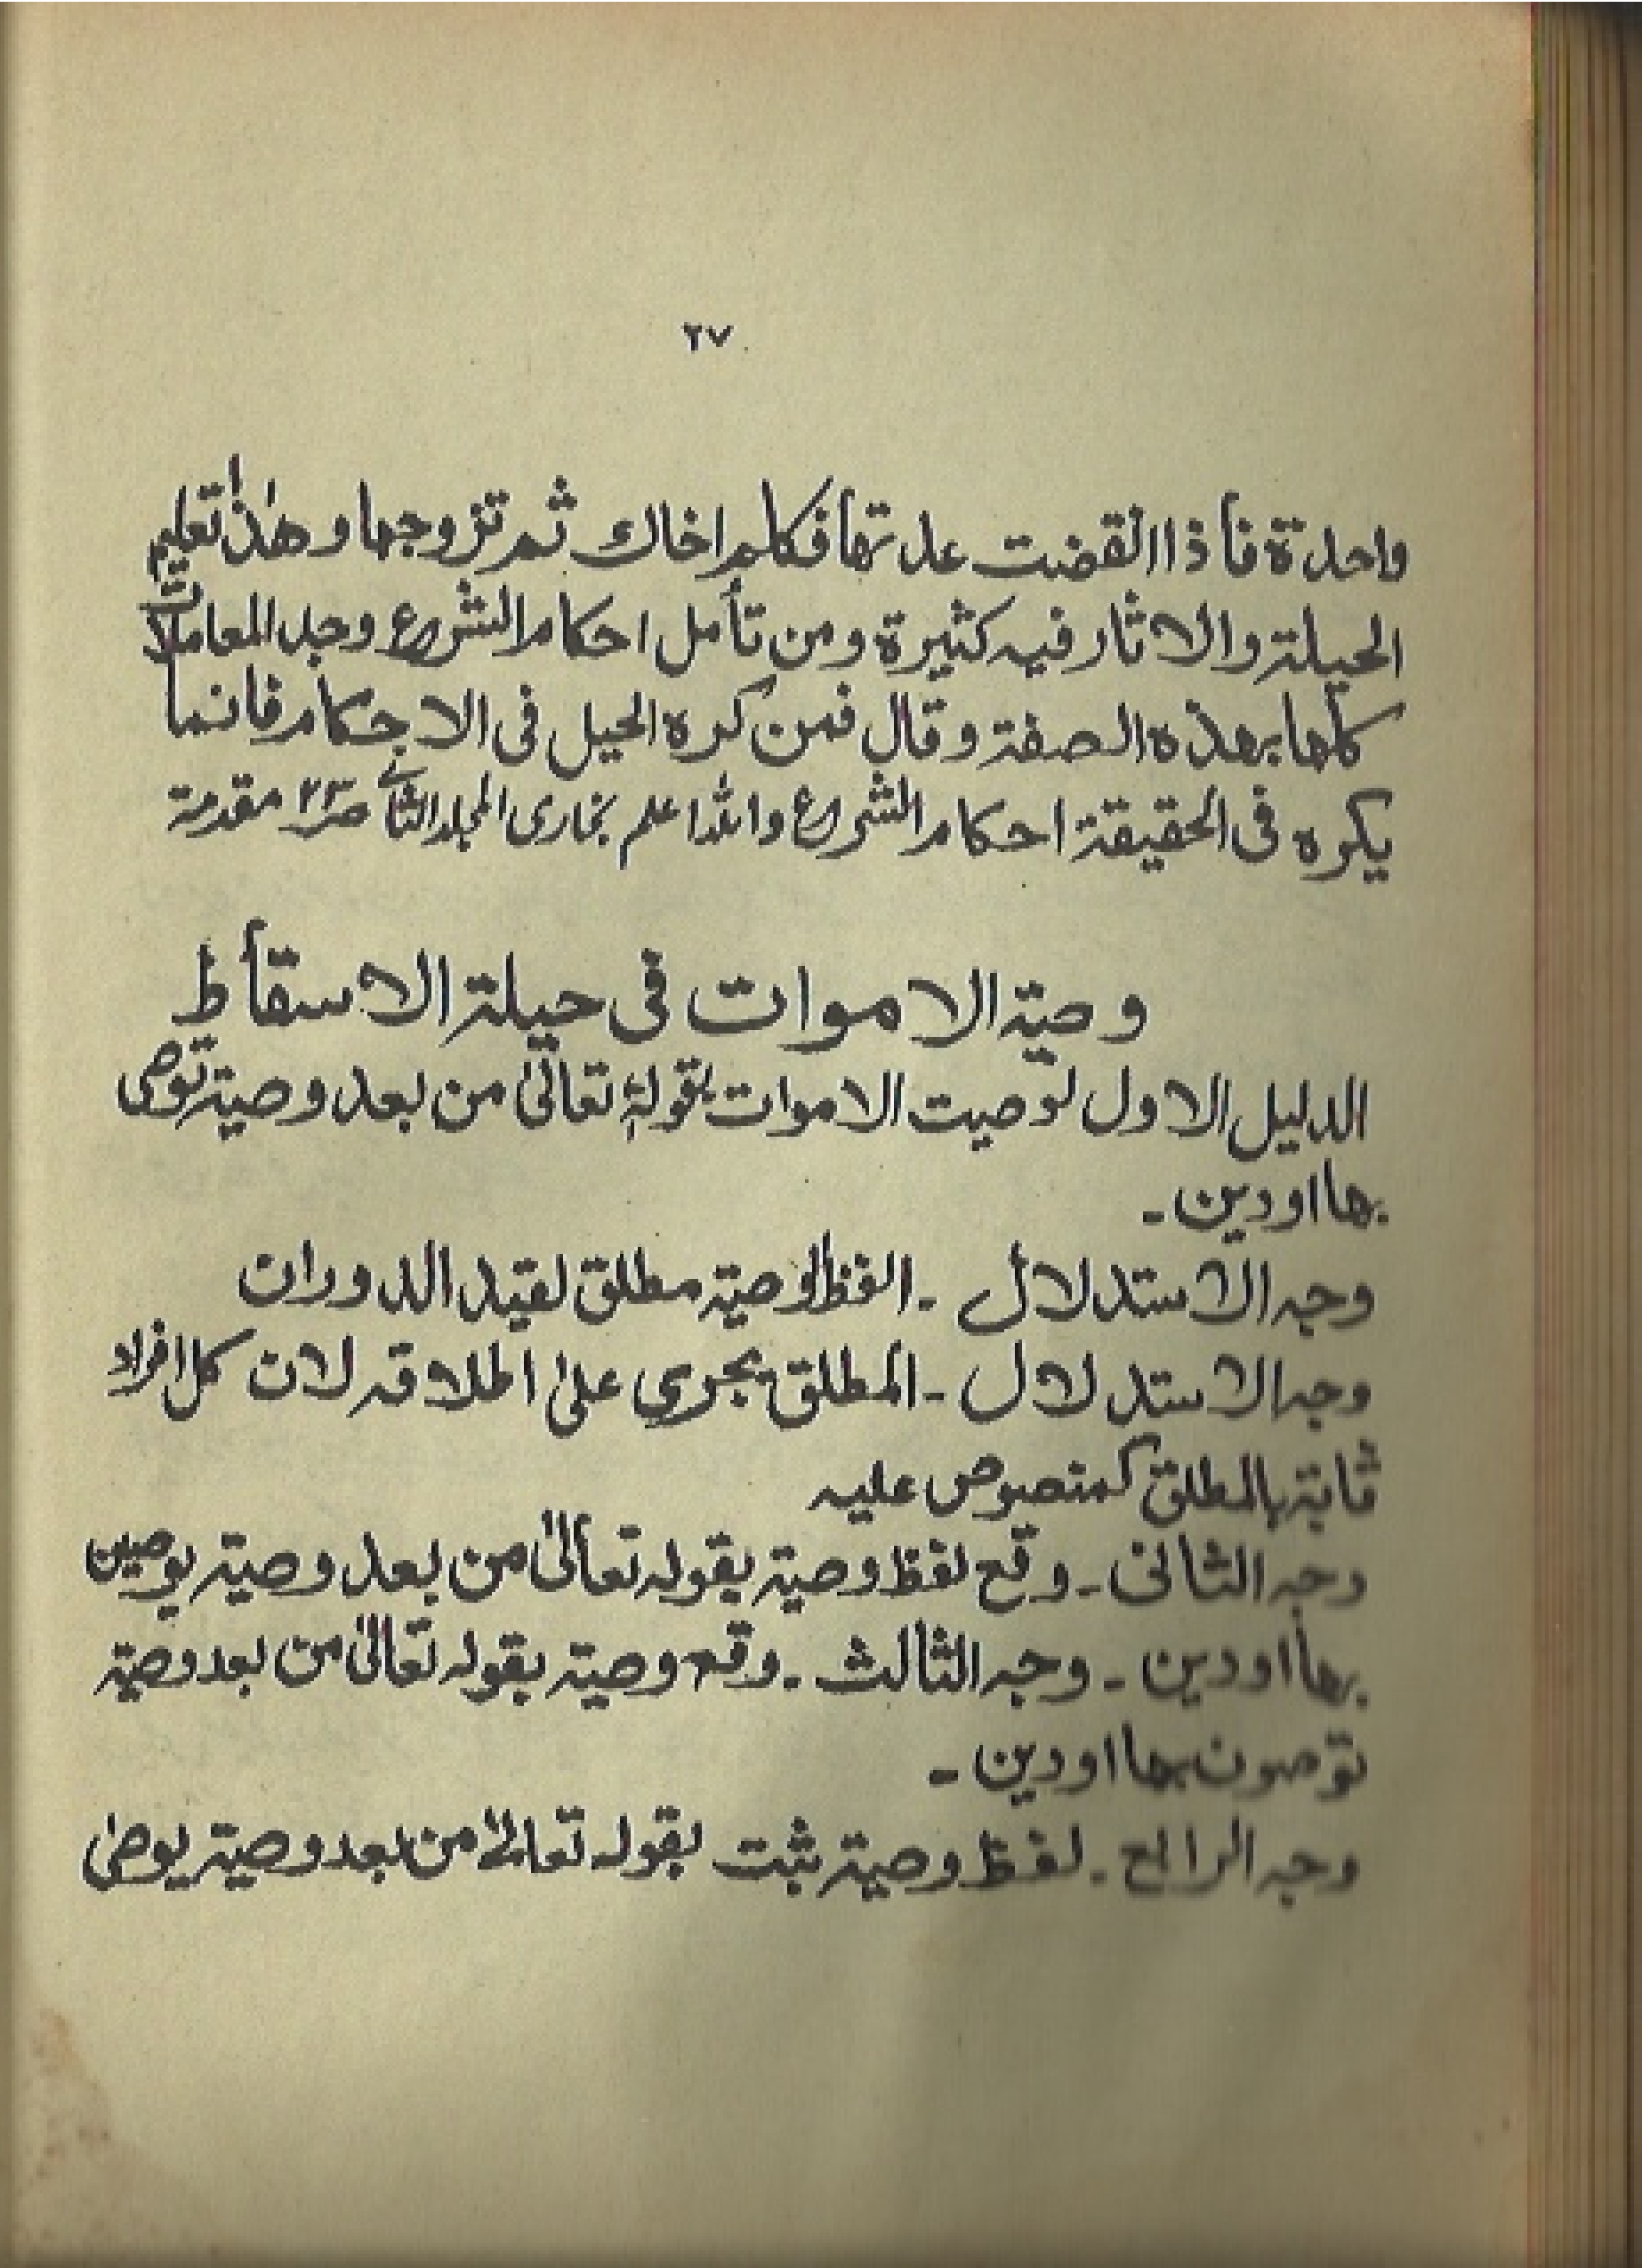 ٢٧
واحدة فاذا انقضت عدتها فكلم اخاك ثم تزوجها و هٰذا تعليم
الحيلة والاثار فيه كثيرة ومن تأمل احكام الشرع وجد المعاملات
كلها بهذه الصفة وقال فمن كره الحيل فى الاحكام فانما
يكره فى الحقيقة احكام الشرع والله اعلم بخارى المجلد الثانے صـ٢٣ مقدمة
وصية الاموات فى حيلة الاسقاط
الدليل الاول لوصيت الاموات بقولهٖ تعالىٰ من بعد وصية توصى
بها اودين ـ
وجه الاستدلال ـ الفظ الوصية مطلق لقيد الدوران
وجه الاستدلال ـ المطلق يجرى علىٰ اطلاقه لان كل افراد
ثابتة بالمطلق كمنصوص عليه
وجه الثانى ـ وقع لفظ وصية بقوله تعالىٰ من بعد وصية يوصين
بها اودين ـ وجه الثالث ـ وقع وصية بقوله تعالىٰ من بعد وصية
توصون بها اودين ـ
وجه الرابع ـ لفظ وصية ثبت بقوله تعالىٰ من بعد وصية يوصىٰ